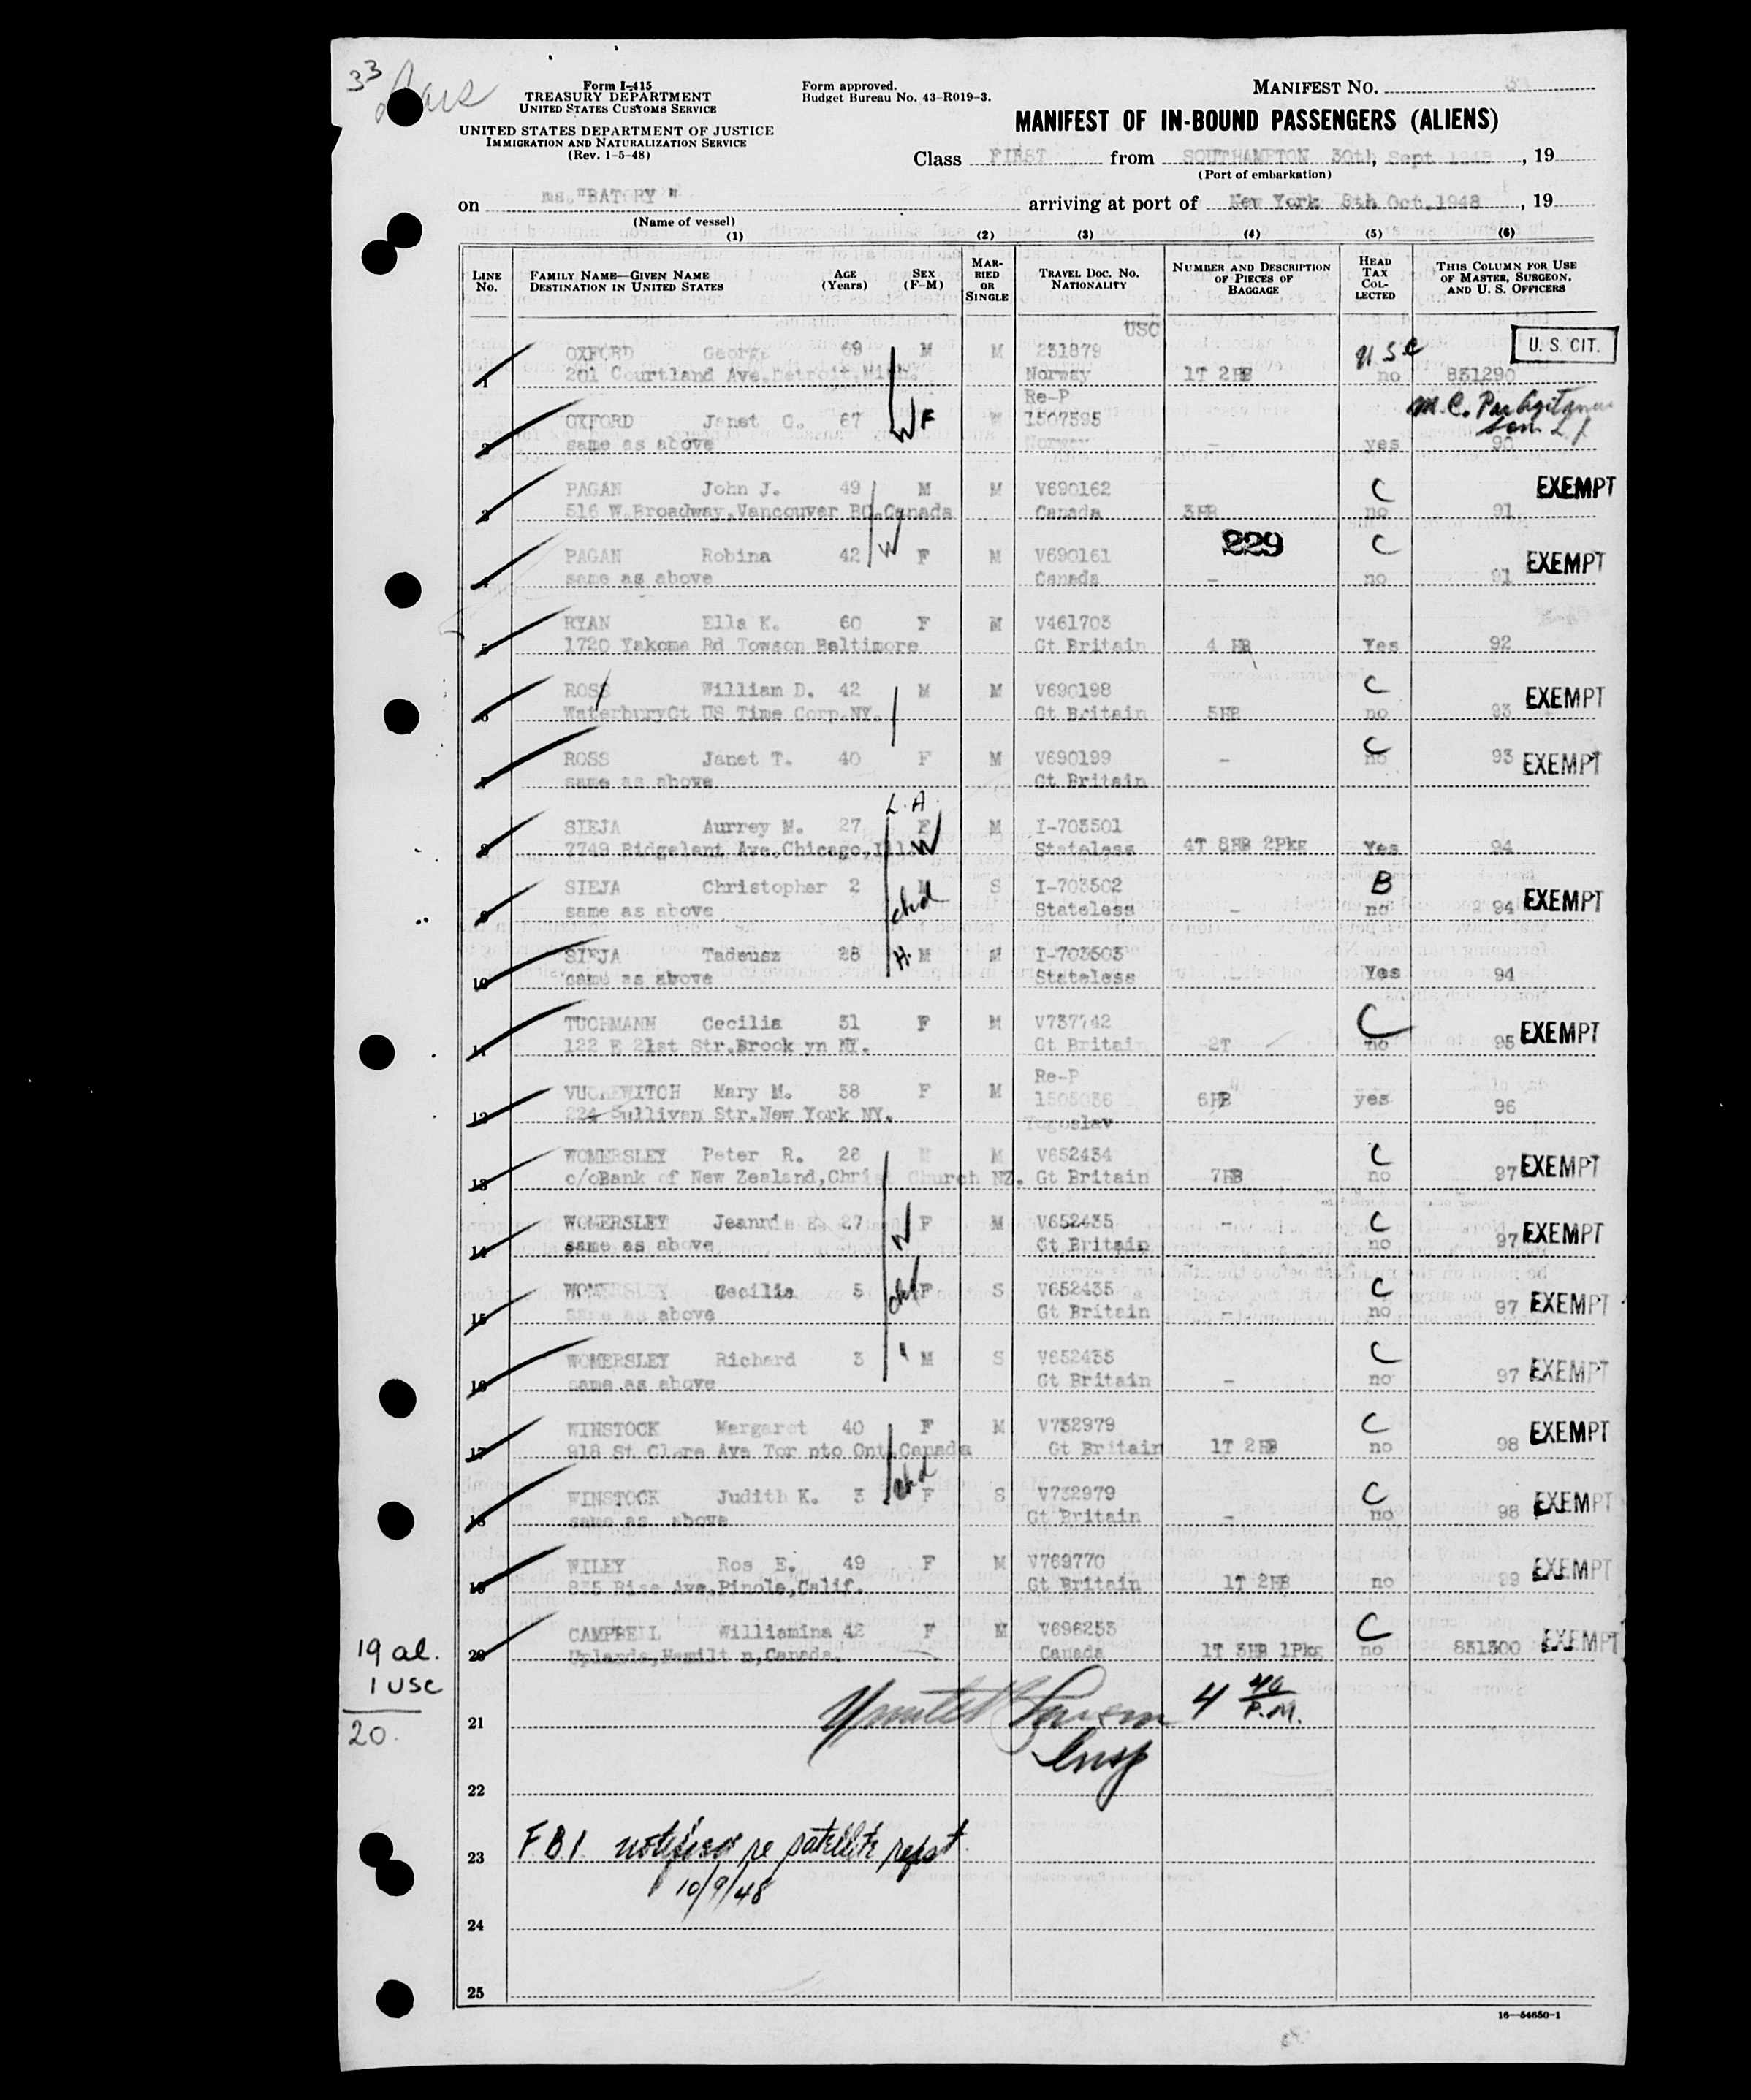 33
Form I-415
TREASURY DEPARTMENT
UNITED STATES CUSTOMS SERVICE
UNITED STATES DEPARTMENT OF JUSTICE
IMMIGRATION AND NATURALIZATION SERVICE
(Rev. 1-5-48)
Form approved.
Budget Bureau No. 43-R019-3.
MANIFEST NO.
MANIFEST OF IN-BOUND PASSENGERS (ALIENS)
Class FIRST from SOUTHAMPTON 30th, Sept 1948, 19
(Port of embarkation)
on ms. "BATORY" arriving at port of New York 8th Oct. 1948, 19
(Name of vessel)
(1) (2) (3) (4) (5) (6)
LINE No. FAMILY NAME—GIVEN NAME DESTINATION IN UNITED STATES AGE (Years) SEX (F-M) MARRIED OR SINGLE TRAVEL DOC. NO. NATIONALITY NUMBER AND DESCRIPTION OF PIECES OF BAGGAGE HEAD TAX COLLECTED THIS COLUMN FOR USE OF MASTER, SURGEON, AND U. S. OFFICERS
USC
OXFORD George 69 M M 231879 USC U. S. CIT.
1 201 Courtland Ave.Detroit,Mich. Norway 1T 2HB no 831290
Re-P M.C.
OXFORD Janet G. 67 W F 1507595
2 same as above Norway - yes 90
PAGAN John J. 49 M M V690162 C EXEMPT
3 516 W.Broadway,Vancouver BC.Canada Canada 3HB no 91
229
PAGAN Robina 42 W F M V690161 C EXEMPT
4 same as above Canada - no 91
RYAN Ella K. 60 F M V461703
5 1720 Yakoma Rd Towson Baltimore Gt Britain 4 HB Yes 92
ROSS William D. 42 M M V690198 C EXEMPT
6 WaterburyCt US Time Corp.NY. Gt Britain 5HB no 93
ROSS Janet T. 40 F M V690199 - C no 93 EXEMPT
7 same as above Gt Britain
L.A.
SIEJA Aurrey M. 27 F M I-703501
8 7749 Ridgelant Ave.Chicago,Ill. W Stateless 4T 8HB 2Pkg Yes 94
SIEJA Christopher 2 M S I-703502 B
9 same as above chd Stateless - no 94 EXEMPT
SIEJA Tadeusz 28 H. M M I-703503
10 same as above Stateless - Yes 94
TUCHMANN Cecilia 31 F M V737742 C EXEMPT
11 122 E 21st Str.Brook yn NY. Gt Britai 2T no 95
Re-P
VUCKEWITCH Mary M. 38 F M 1505036 6HB yes 96
12 224 Sullivan Str.New York NY. Yugoslav
WOMERSLEY Peter R. 28 M M V652434 C EXEMPT
13 c/oBank of New Zealand,Chris Church NZ. Gt Britain 7HB no 97
WOMERSLEY Jeannie E. 27 W F M V652435 - C EXEMPT
14 same as above Gt Britain no 97
WOMERSLEY Cecilia 5 chd F S V652435 C
15 same as above Gt Britain - no 97 EXEMPT
WOMERSLEY Richard 3 " M S V652435 C
16 same as above Gt Britain - no 97 EXEMPT
WINSTOCK Margaret 40 F M V732979 C EXEMPT
17 918 St. Clare Ave Tor nto Ont.Canada Gt Britain 1T 2HB no 98
WINSTOCK Judith K. 3 chd F S V732979 C EXEMPT
18 same as above Gt Britain - no 98
WILEY Ros E. 49 F M V769770 EXEMPT
19 835 Rise Ave.Pinole,Calif. Gt Britain 1T 2HB no 99
CAMPBELL Williamina 42 F M V696253 C
20 Uplands,Hamilt n,Canada. Canada 1T 3HB 1Pkg no 831300 EXEMPT
19 al.
1 USC
20.
4 40 P.M.
21
Insp
22
23 F.B.I. notified re satellite
10/9/48
24
25
16—54650-1